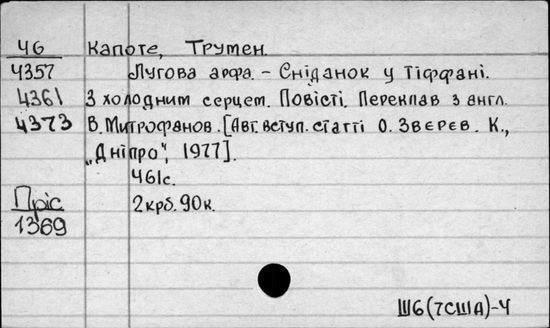 Ч6 Капоте, Трумен.
4357 Лугова арфа. - Сніданок у Тіффані.
4361 З холодним серцем. Повісті. Переклав з англ.
4373 В. Митрофанов. [Авт. вступ. статті О. Зверев. К.,
„Дніпро“, 1977].
461с.
Пріс 2крб. 90к.
1369
Ш6(7США)-Ч